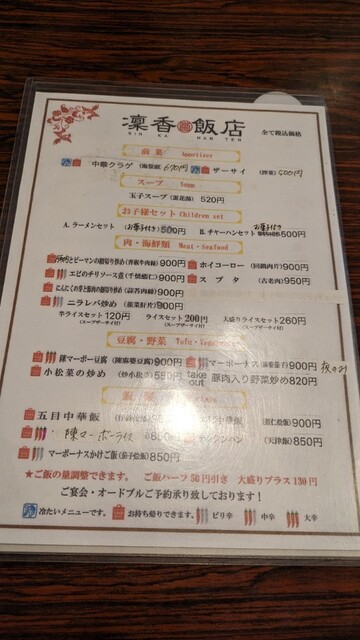 凛香飯店 全て税込価格
RIN KA HAN TEN
前菜 Appetizer
中華クラゲ (海蜇頭) 690円 ザーサイ (搾菜) 500円
スープ Soup
玉子スープ (蛋花湯) 520円
お子様セット Children set
A. ラーメンセット (お菓子付き) 500円 B. チャーハンセット お菓子付き 500円
肉・海鮮類 Meat・Seafood
とピーマンの細切り炒め (青椒牛肉絲) 900円 ホイコーロー (回鍋肉片) 900円
エビのチリソース煮 (干焼蝦仁) 900円 スブタ (古老肉) 950円
にんにくの芽と豚肉の細切り炒め (蒜苔肉絲) 900円
ニラレバ炒め (韮菜肝片) 900円
半ライスセット 120円 ライスセット 200円 大盛りライスセット 260円
(スープザーサイ付) (スープザーサイ付) (スープザーサイ付)
豆腐・野菜 Tofu・Vege
陳マーボー豆腐 (陳麻婆豆腐) 900円 マーボーナス 900円
小松菜の炒め (炒小松菜) 580円 take out 豚肉入り野菜炒め 820円
五目中華飯 中華飯 (蝦仁烩飯) 900円
陳マーボーライス 850 テンシンハン (天津飯) 850円
マーボーナスかけご飯 (茄子烩飯) 850円
★ご飯の量調整できます。 ご飯ハーフ 50円引き 大盛りプラス 130円
ご宴会・オードブルご予約承り致しております!
冷たいメニューです。 お持ち帰りできます。 ピリ辛 中辛 大辛